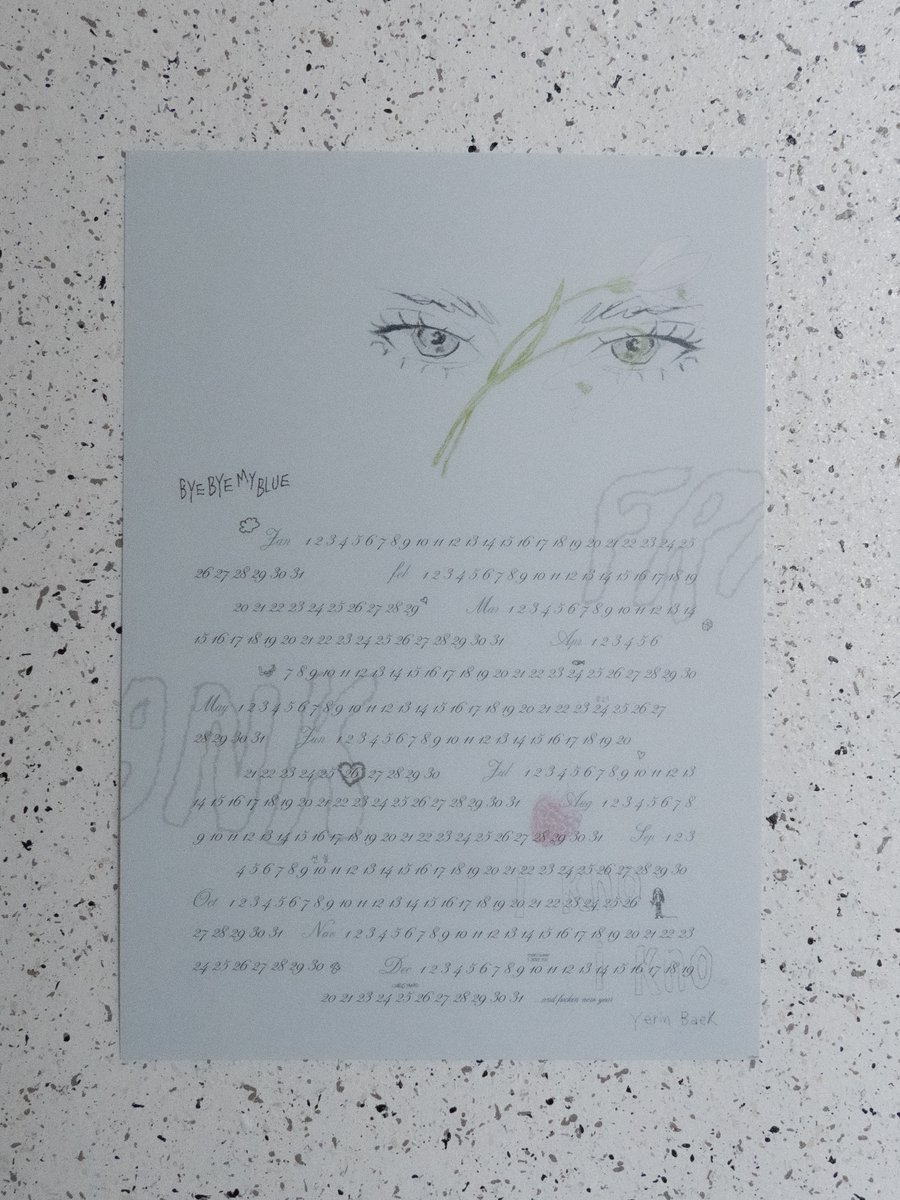 BYE BYE MY BLUE
Jan 1 2 3 4 5 6 7 8 9 10 11 12 13 14 15 16 17 18 19 20 21 22 23 24 25
26 27 28 29 30 31 feb 1 2 3 4 5 6 7 8 9 10 11 12 13 14 15 16 17 18 19
20 21 22 23 24 25 26 27 28 29 Mar 1 2 3 4 5 6 7 8 9 10 11 12 13 14
15 16 17 18 19 20 21 22 23 24 25 26 27 28 29 30 31 Apr 1 2 3 4 5 6
7 8 9 10 11 12 13 14 15 16 17 18 19 20 21 22 23 24 25 26 27 28 29 30
May 1 2 3 4 5 6 7 8 9 10 11 12 13 14 15 16 17 18 19 20 21 22 23 24 25 26 27
28 29 30 31 Jun 1 2 3 4 5 6 7 8 9 10 11 12 13 14 15 16 17 18 19 20
21 22 23 24 25 26 27 28 29 30 Jul 1 2 3 4 5 6 7 8 9 10 11 12 13
14 15 16 17 18 19 20 21 22 23 24 25 26 27 28 29 30 31 Aug 1 2 3 4 5 6 7 8
9 10 11 12 13 14 15 16 17 18 19 20 21 22 23 24 25 26 27 28 29 30 31 Sep 1 2 3
4 5 6 7 8 9 10 11 12 13 14 15 16 17 18 19 20 21 22 23 24 25 26 27 28 29 30
Oct 1 2 3 4 5 6 7 8 9 10 11 12 13 14 15 16 17 18 19 20 21 22 23 24 25 26
27 28 29 30 31 Nov 1 2 3 4 5 6 7 8 9 10 11 12 13 14 15 16 17 18 19 20 21 22 23
24 25 26 27 28 29 30 Dec 1 2 3 4 5 6 7 8 9 10 11 12 13 14 15 16 17 18 19
I KNO
20 21 23 24 25 26 27 28 29 30 31 and fucken new year
Yerin Baek